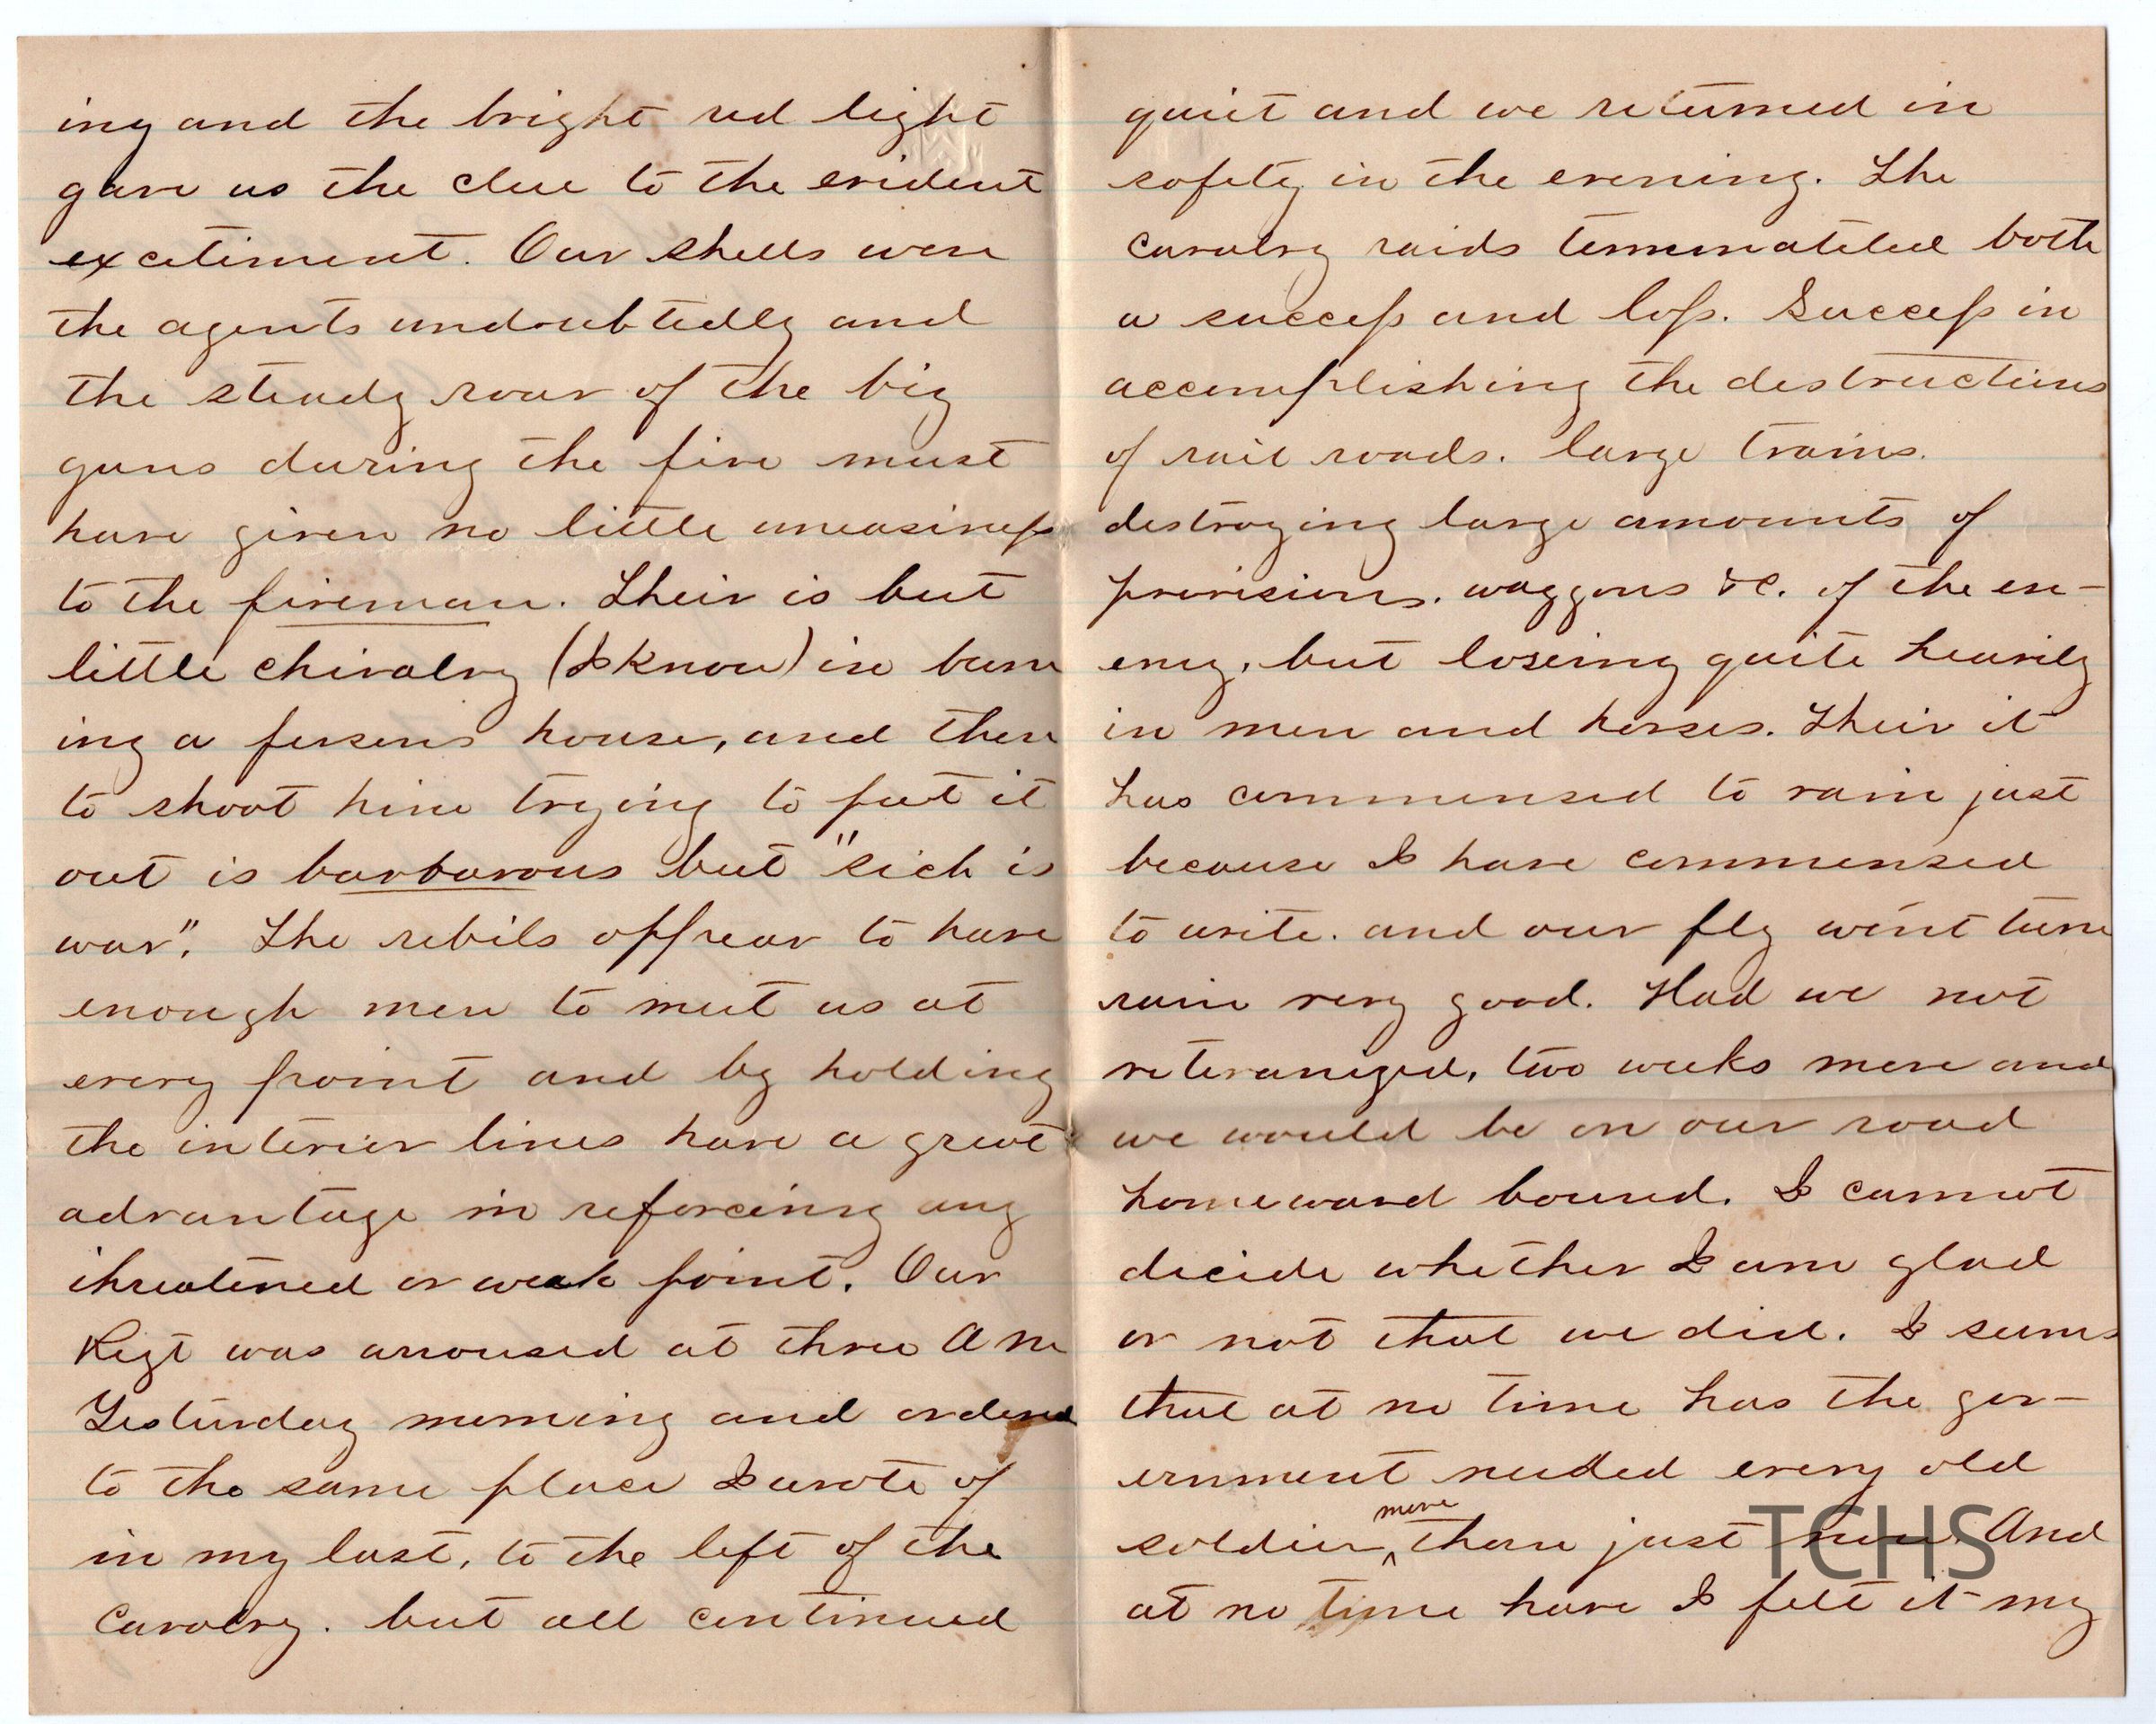 ing and the bright red light
gave us the clue to the evident
excitiment. Our shells were
the agents undoubtedly and
the steady roar of the big
guns during the fire must
have given no little uneasiness
to the fireman. Their is but
little chivalry (I know) in burn
ing a persons house, and then
to shoot him trying to put it
out is barbarous but "sich is
war". The rebils appear to have
enough men to meet us at
every point and by holding
the interior lines have a great
advantage in reforceing any
threatened or weak point. Our
Regt was arroused at three A M
Yesturday morning and ordered
to the same place I wrote of
in my last, to the left of the
Cavalry. but all continued
quiet and we returned in
safety in the evening. The
Cavalry raids termenateted both
a success and loss. Success in
accomplishing the destructions
of rail roads. large trains.
destroying large amounts of
provisions. waggons &c. of the en-
emy, but loseing quite heavily
in men and horses. Their it
has commensed to rain just
because I have commensed
to write. and our fly wont turn
rain very good. Had we not
veteranized, two weeks more and
we would be on our road
homeward bound. I cannot
decide whether I am glad
or not that we did. I seems
that at no time has the gov-
ernment needed every old
soldier, more than just now. And
at no time have I felt it my
TCHS